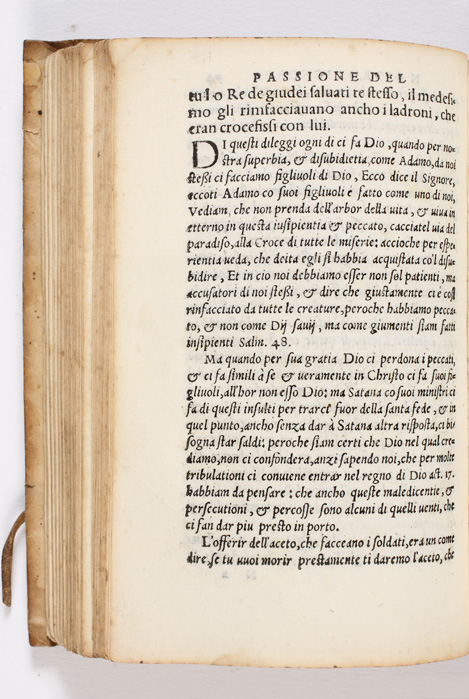 PASSIONE DEL
tu lo Re de giudei saluati te stesso, il medesi
mo gli rimfacciauano ancho i ladroni, che
eran crocefissi con lui.
DI questi dileggi ogni di ci fa Dio, quando per no-
stra superbia, & disubidiẽtia, come Adamo, da noi
steßi ci facciamo figliuoli di Dio, Ecco dice il Signore,
eccoti Adamo co suoi figliuoli è fatto come uno di noi,
Vediam, che non prenda dell'arbor della uita, & uiua in
etterno in questa insipientia & peccato, cacciatel uia del
paradiso, alla Croce di tutte le miserie: accioche per espe
rientia ueda, che deita egli si habbia acquistata co'l disu-
bidire, Et in cio noi debbiamo esser non sol patienti, ma
accusatori di noi steßi, & dire che giustamente ci è cosi
rinfacciato da tutte le creature, peroche habbiamo pecca-
to, & non come Dij sauij, ma come giumenti siam fatti
insipienti Salm. 48.
Ma quando per sua gratia Dio ci perdona i peccati,
& ci fa simili à se & ueramente in Christo ci fa suoi fi-
gliuoli, all'hor non esso Dio: ma Satana co suoi ministri ci
fa di questi insulti per trarci fuor della santa fede, & in
quel punto, ancho senza dar à Satana altra risposta, ci bi
sogna star saldi: peroche siam certi che Dio nel qual cre-
diamo, non ci confonderà, anzi sapendo noi, che per molte
tribulationi ci conuiene entrar nel regno di Dio act. 17.
habbiam da pensare: che ancho queste maledicentie, &
persecutioni, & percosse sono alcuni di quelli uenti, che
ci fan dar piu presto in porto.
L'offerir dell'aceto, che faceano i soldati, era un come
dire, se tu uuoi morir prestamente ti daremo l'aceto, che